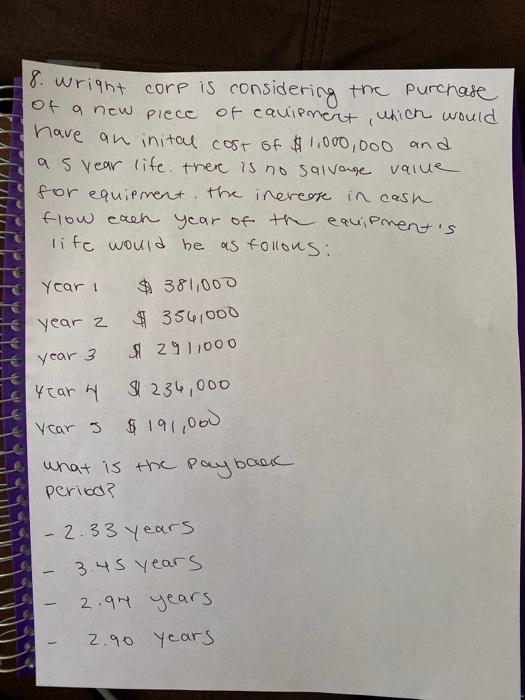 8. Wright corp is considering the purchase
of a new piece of equipment, which would
have an inital cost of $1,000,000 and
a 5 year life. there is no salvage value
for equiement. the increase in cash
flow each year of the equipment's
life would be as follows:
year 1 $ 381,000
year 2 $ 356,000
year 3 $ 291,000
year 4 $ 236,000
year 5 $ 191,000
what is the payback
period?
- 2.33 years
- 3.45 years
- 2.94 years
- 2.90 years